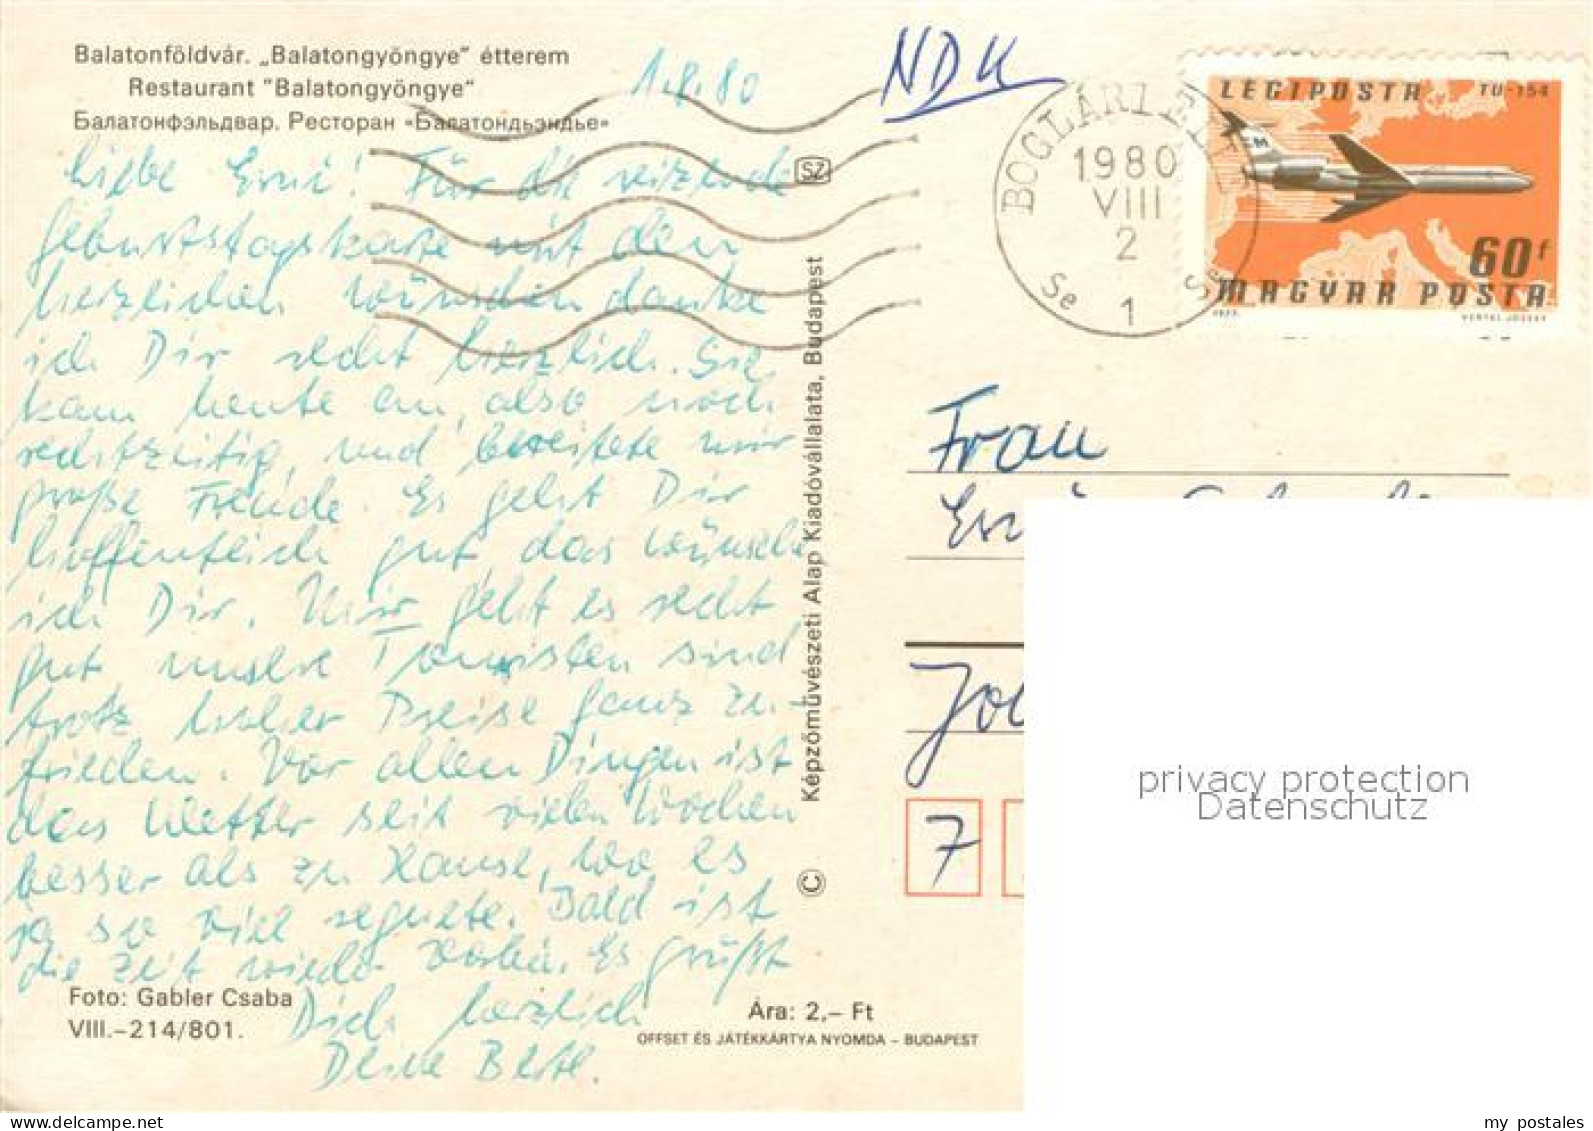 Balatonföldvár. „Balatongyöngye" étterem
Restaurant "Balatongyöngye"
Балатонфэльдвар. Ресторан «Балатондьэндье»
1.8.80
NDK
Liebe Erni! Für die reizende
Geburtstagskarte mit den
herzlichen Wünschen danke
ich Dir recht herzlich. Sie
kam heute an, also noch
rechtzeitig, und bereitete mir
große Freude. Es geht Dir
hoffentlich gut das wünsche
ich Dir. Mir geht es recht
gut unsere Touristen sind
trotz hoher Preise ganz zu-
frieden. Vor allen Dingen ist
das Wetter seit vielen Wochen
besser als zu Hause, wo es
ja so viel regnete. Bald ist
die Zeit wieder vorbei. Es grüßt
Dich herzlich
Deine
Foto: Gabler Csaba
VIII.–214/801.
Ára: 2,– Ft
OFFSET ÉS JÁTÉKKÁRTYA NYOMDA – BUDAPEST
SZ
© Képzőművészeti Alap Kiadóvállalata, Budapest
1980
VIII
2
Se
1
LÉGIPOSTA TU-154
60f
MAGYAR POSTA
Frau
7
privacy protection
Datenschutz
my_postales